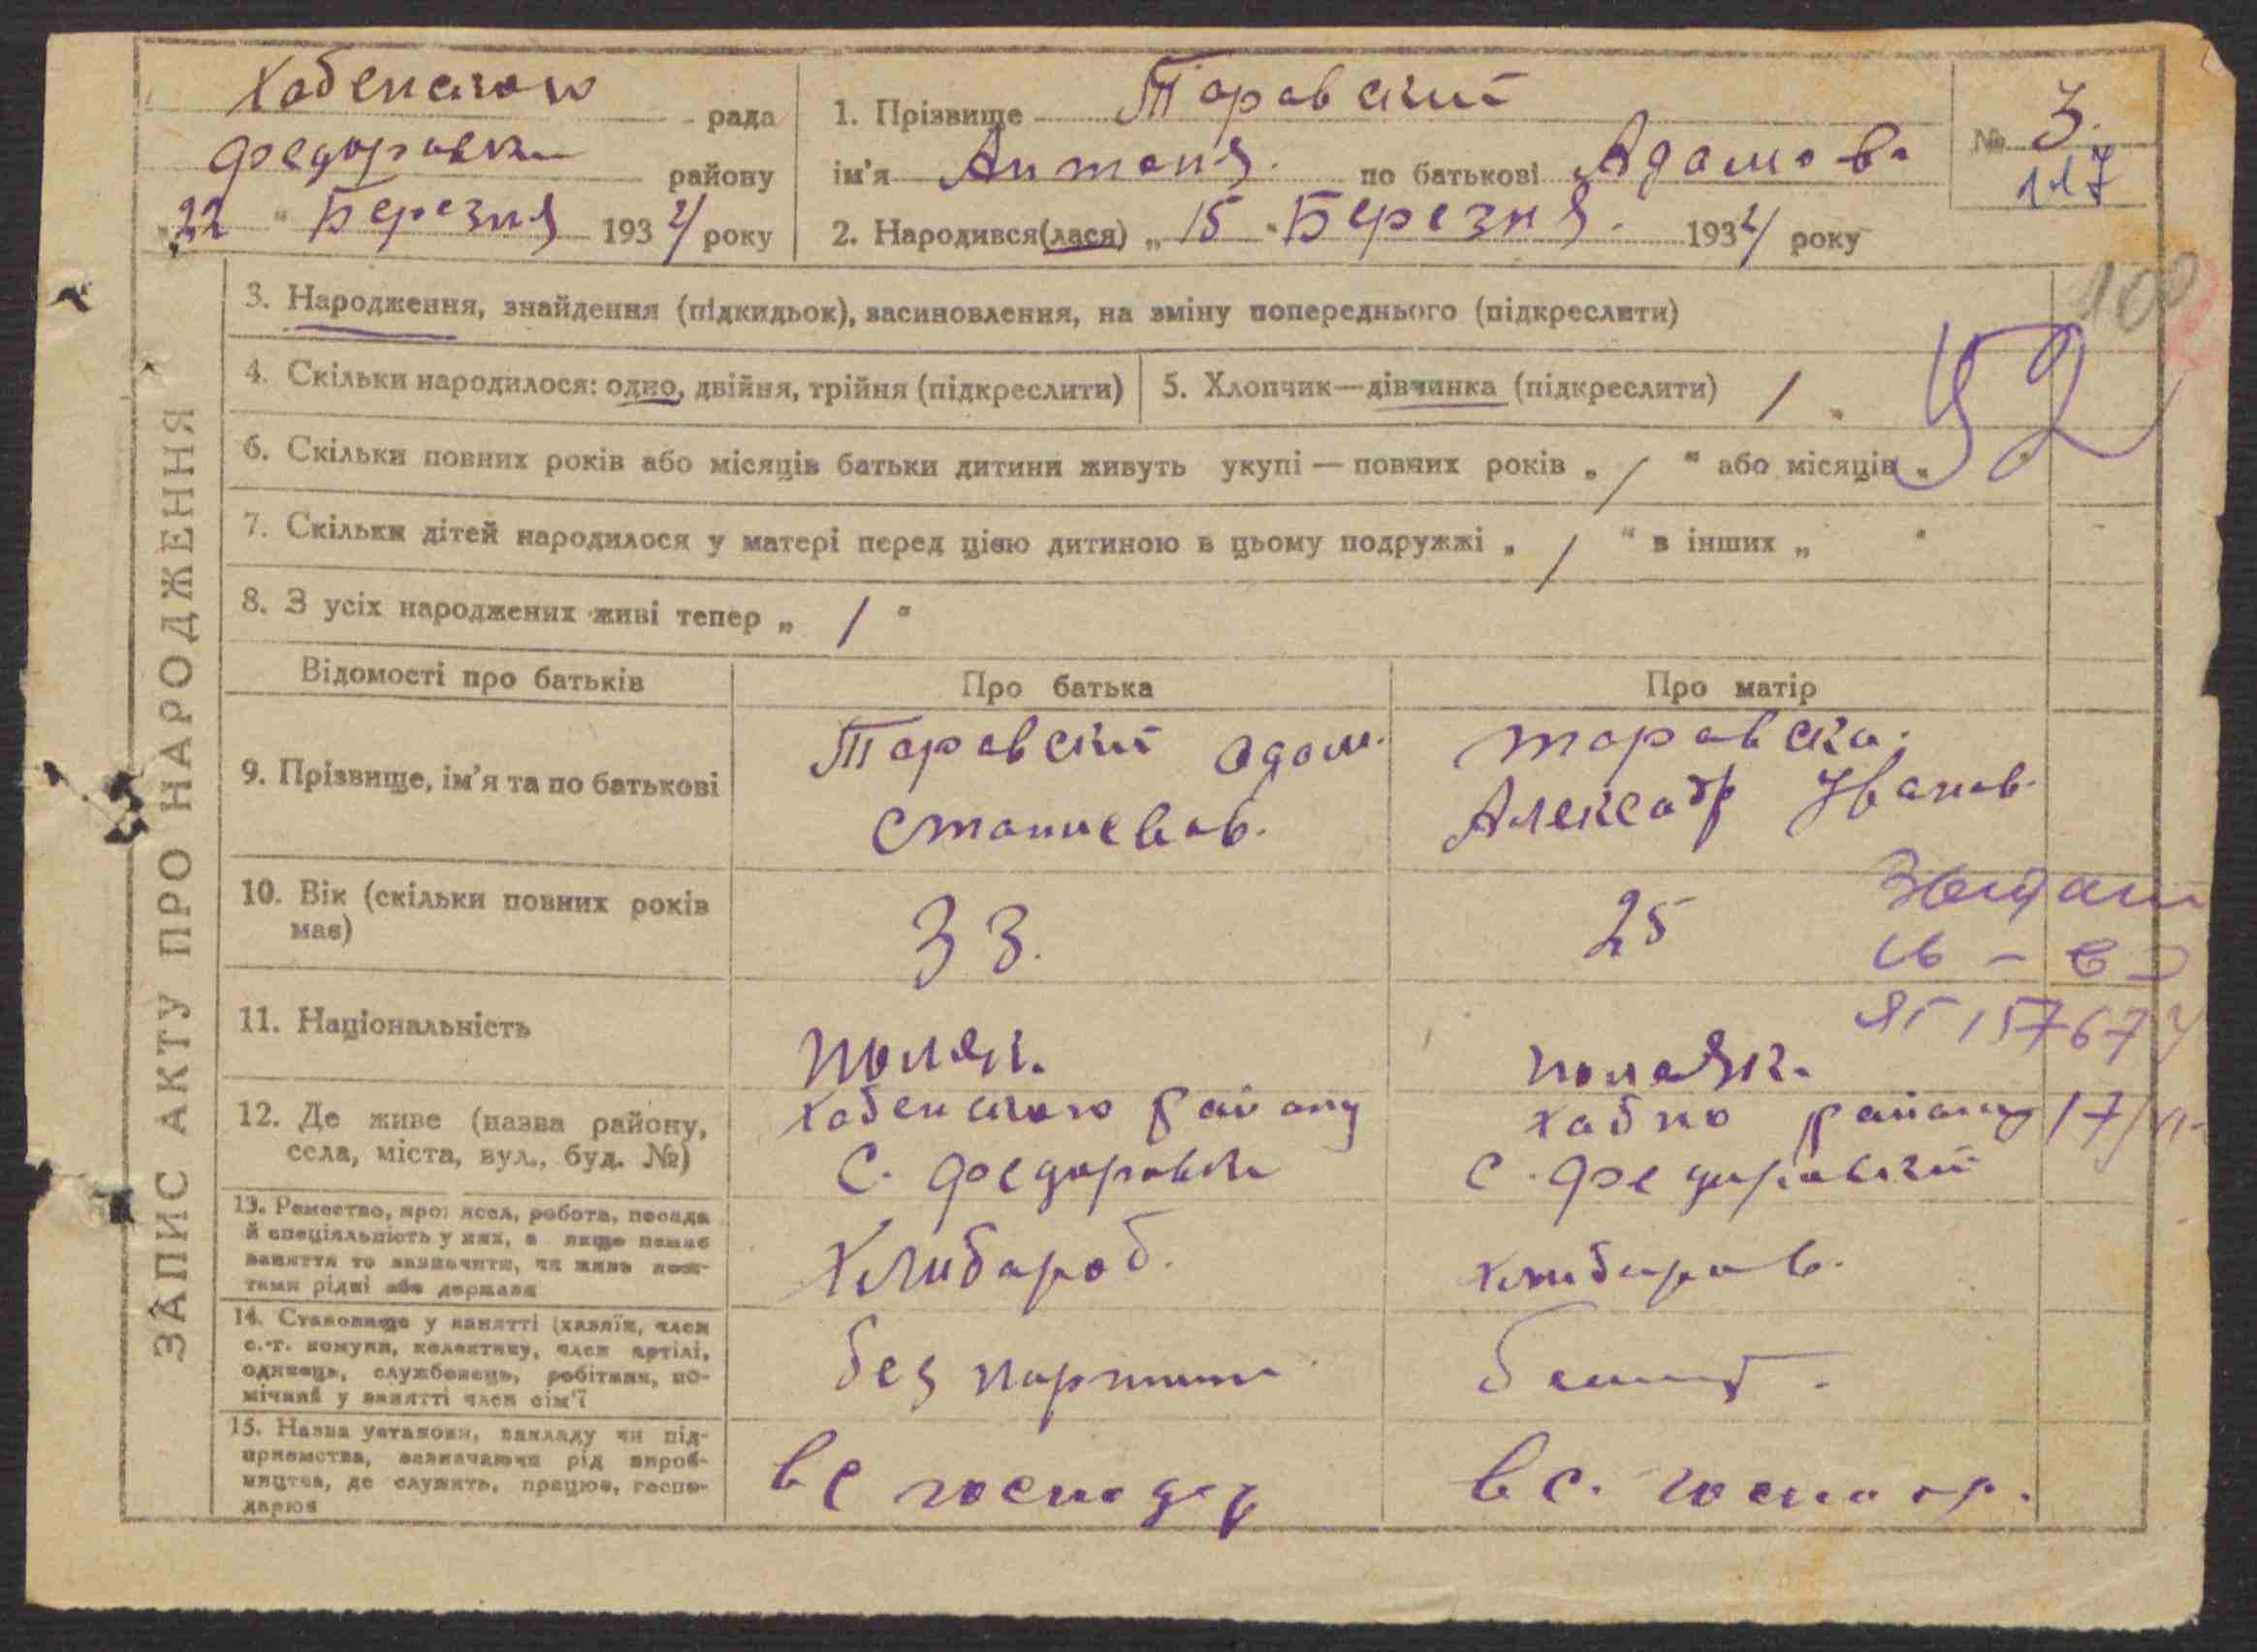 Хабенского рада
Федоровки району
"22" Березня 1934 року
1. Прізвище Таровский
ім'я Антоня. по батькові Адамов.
2. Народився(лася) „15" Березня. 1934 року
№ 3.
117
100
52
ЗАПИС АКТУ ПРО НАРОДЖЕННЯ
3. Народження, знайдення (підкидьок), васиновлення, на зміну попереднього (підкреслити)
4. Скільки народилося: одно, двійня, трійня (підкреслити)
5. Хлопчик—дівчинка (підкреслити) 1.
6. Скільки повних років або місяців батьки дитини живуть укупі — повних років „ 1 " або місяців „ "
7. Скільки дітей народилося у матері перед цією дитиною в цьому подружжі „ 1 " в інших „ "
8. З усіх народжених живі тепер „ 1 "
Відомості про батьків
Про батька
Про матір
9. Прізвище, ім'я та по батькові
Таровский адам.
Станисвав.
таровска.
Александр Иванов.
10. Вік (скільки повних років
має)
33.
25
11. Національність
поляк.
поляк.
ЯГ 157674
12. Де живе (назва району,
села, міста, вул., буд. №)
Хабенского району
С. Федоровки
хабно району
с. Федоровкий
13. Ремество, промисел, робота, посада
й спеціяльність у них, а якщо немає
заняття то зазначити, чи живе кош-
тами рідні або держави
Хлибароб.
хлибароб.
14. Становище у занятті (хазяїн, член
с.-т. комуни, колективу, член артілі,
одинець, службовець, робітник, по-
мічний у занятті член сім'ї
без партини
15. Назва установи, закладу чи під-
приємства, зазначаючи рід вироб-
ництва, де служить, працює, госпо-
дарює
в с господар
в с. господар.